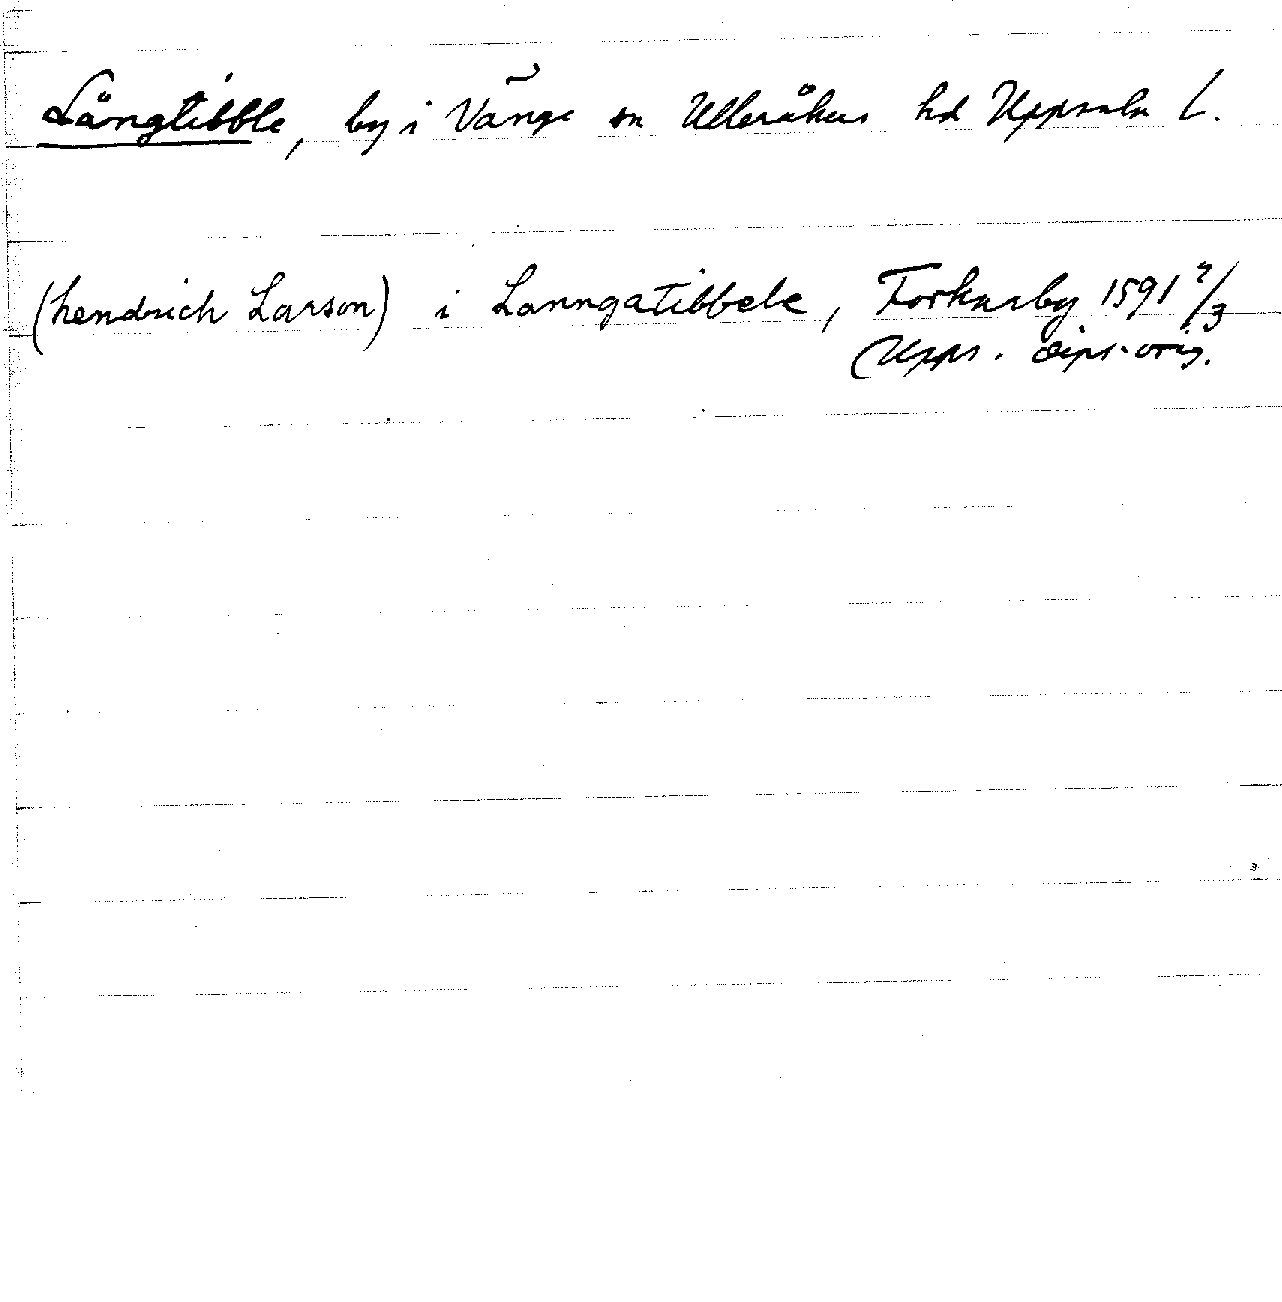 Långtibble, by i Vänge sn Ulleråkers hd Uppsala L.
(hendrich Larson) i Lanngatibbele, Forkarby 1591 7/3
(Upps. dipl. orig.